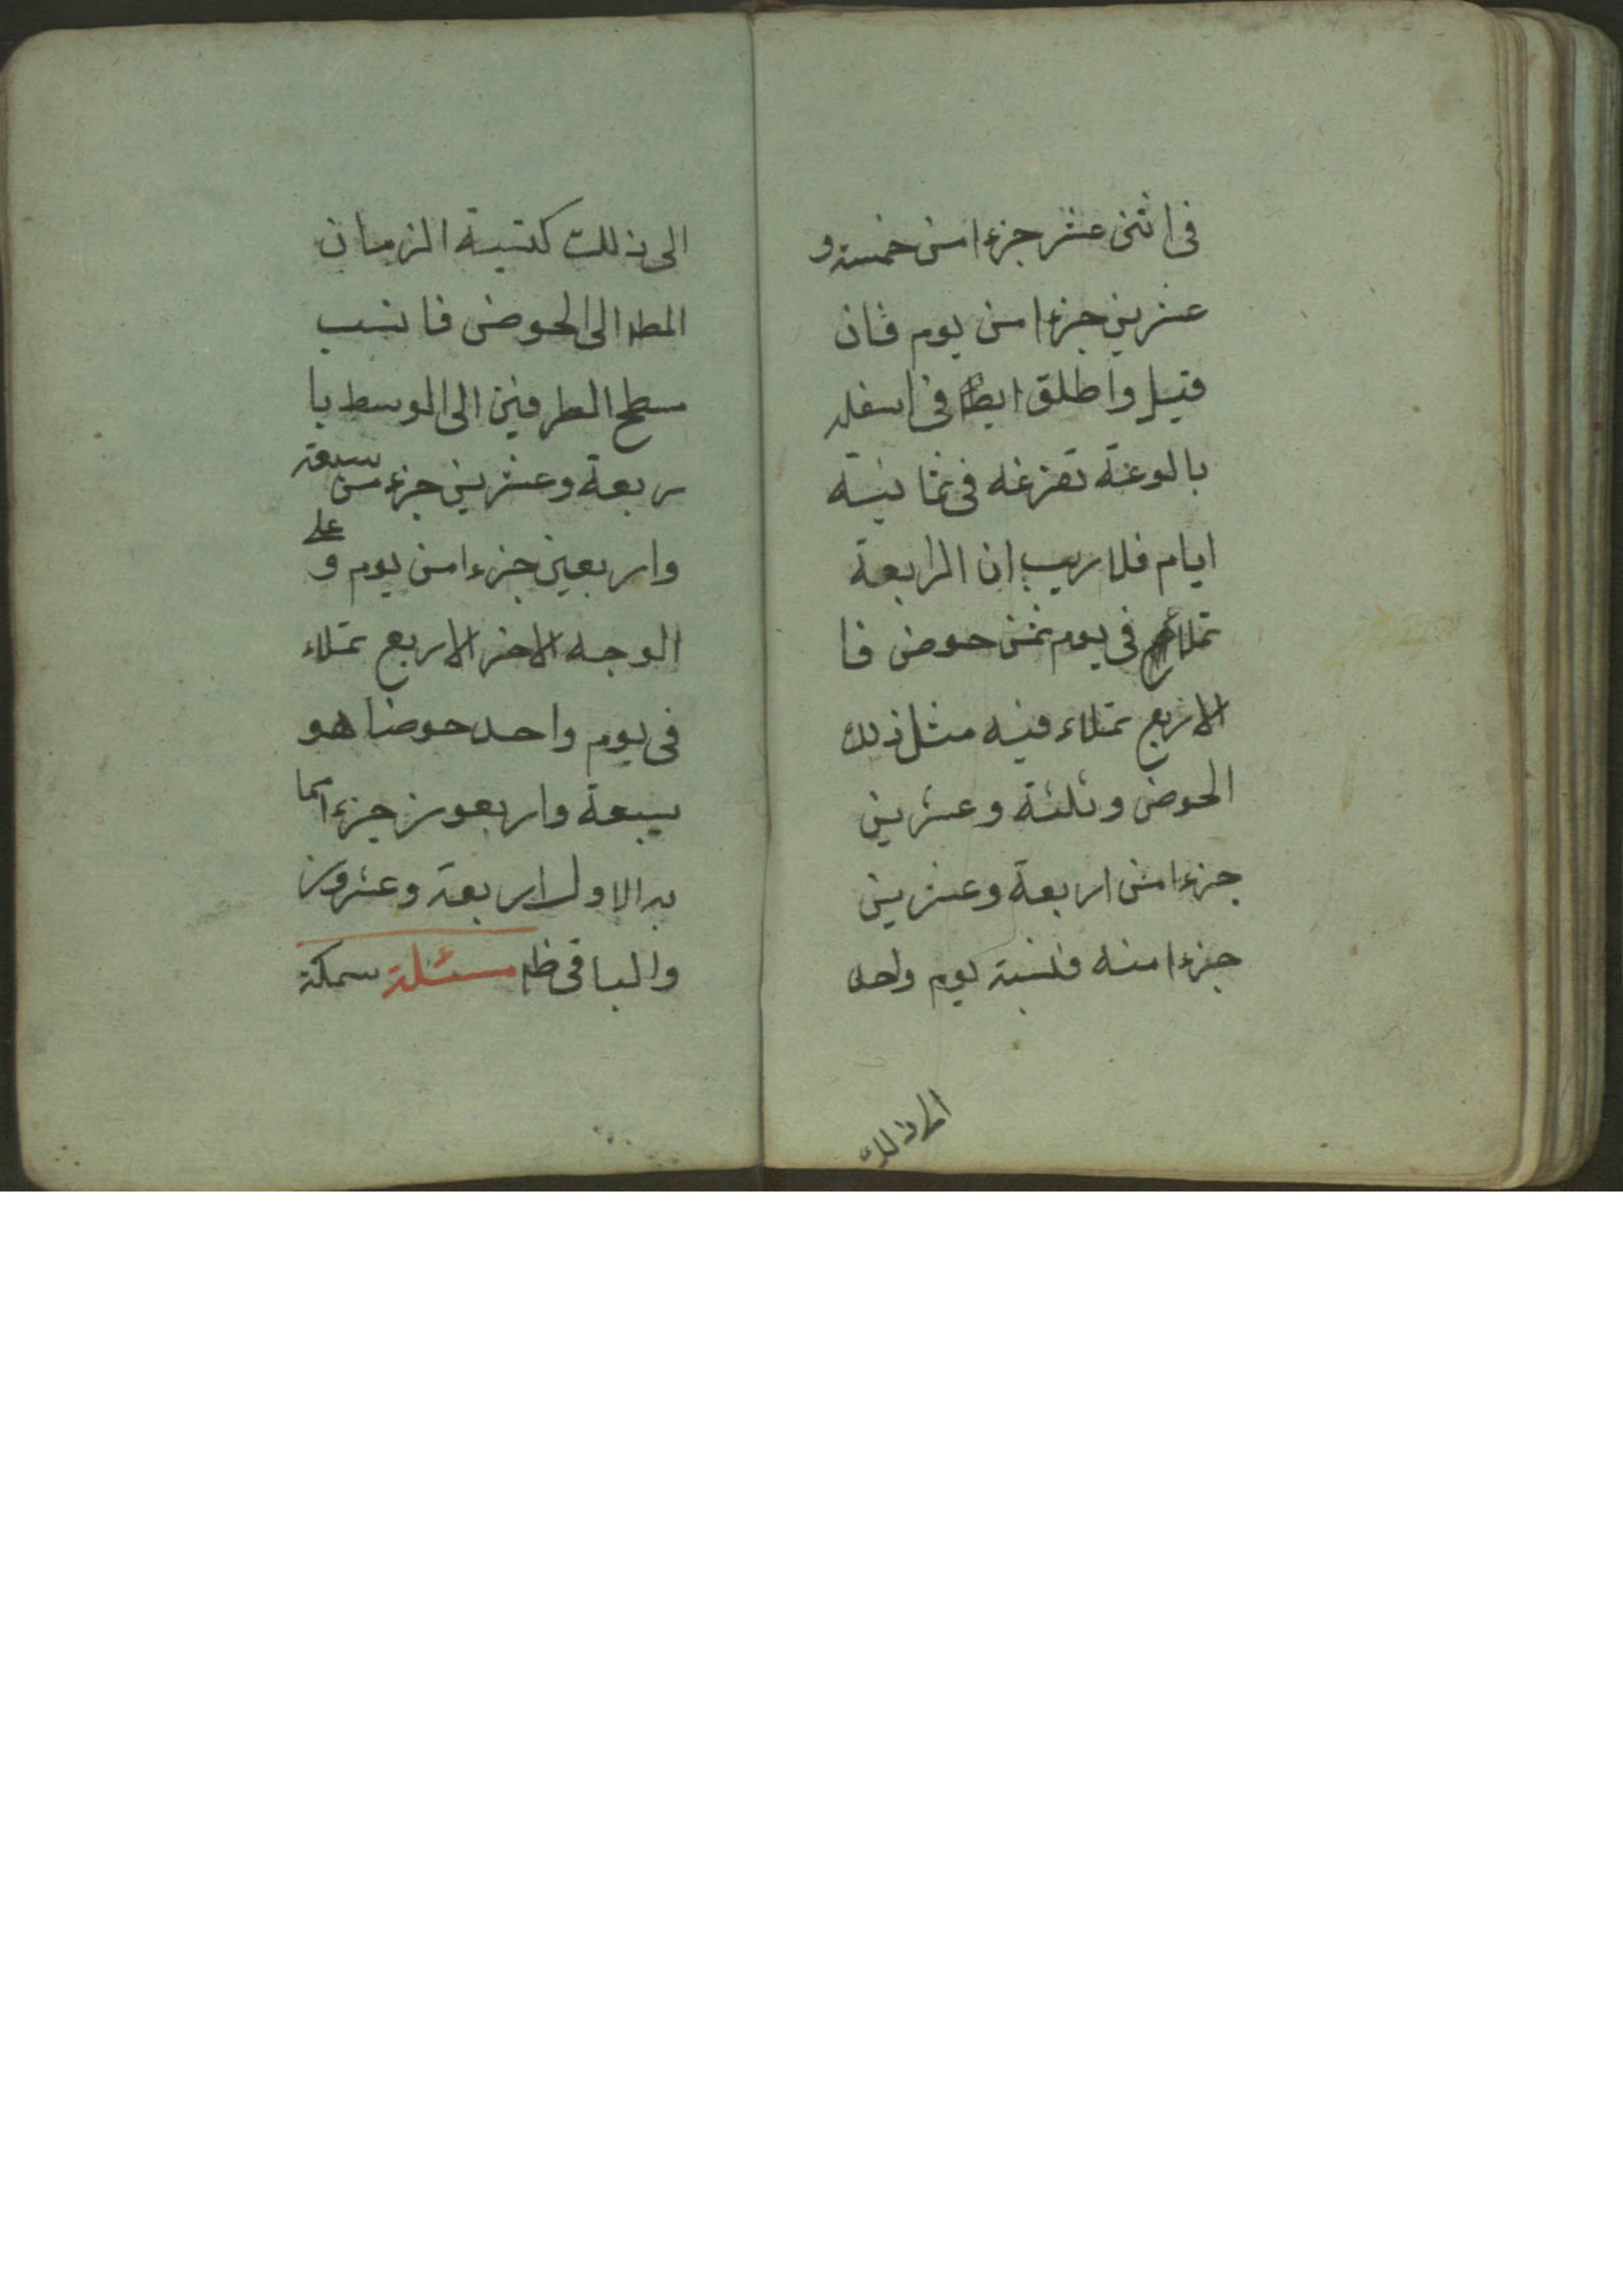 فى اثنى عشر جزءا من خمسة و
عشرين جزءا من يوم فان
قيل واطلق ايضا فى اسفله
بالوعة تفرغه فى ثمانية
ايام فلا ريب ان الرابعة
تملأ فى يوم ثمن حوض فا
الاربع تملاء فيه مثل ذلك
الحوض وثلثة وعشرين
جزءا من اربعة وعشرين
جزءا منه فنسبة يوم واحد
الى ذلك
الى ذلك كنسبة الزمان
المط الى الحوض فانسب
مسطح الطرفين الى الوسط با
ربعة وعشرين جزء من سبعة
واربعين جزءا من يوم و على
الوجه الاخر الاربع تملاء
فى يوم واحد حوضا هو
سبعة واربعون جزءا مما
به الاول اربعة وعشرون
والباقى ظ مسئلة سمكة